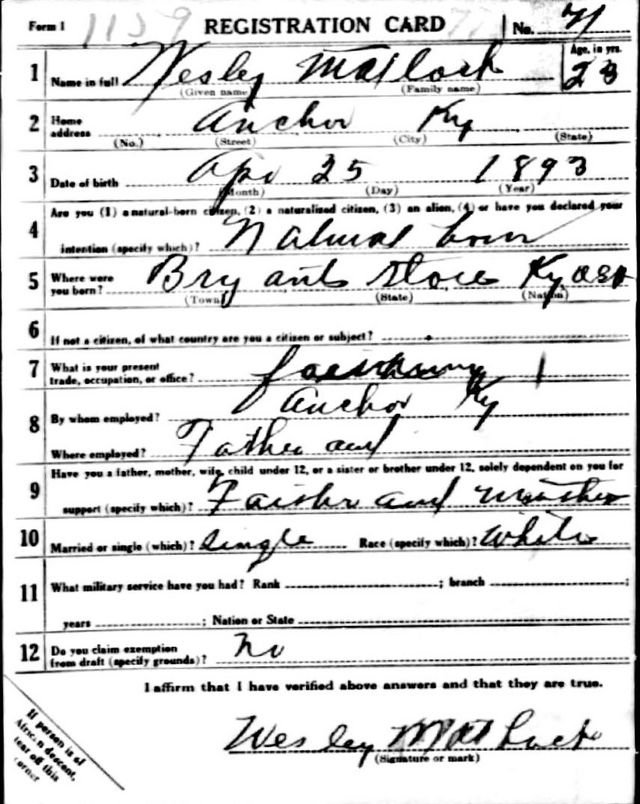 Form 1 1159 REGISTRATION CARD No. 71
1 Name in full Wesley Matlock Age, in yrs. 23
(Given name) (Family name)
2 Home address Anchor Ky
(No.) (Street) (City) (State)
3 Date of birth Apr 25 1893
(Month) (Day) (Year)
Are you (1) a natural-born citizen, (2) a naturalized citizen, (3) an alien, (4) or have you declared your
4 intention (specify which)? Natural born
5 Where were you born? Bryants Store Ky USA
(Town) (State) (Nation)
6 If not a citizen, of what country are you a citizen or subject?
7 What is your present trade, occupation, or office? 1
8 By whom employed? Anchor Ky
Where employed? Father and
Have you a father, mother, wife, child under 12, or a sister or brother under 12, solely dependent on you for
9 support (specify which)? Father and Mother
10 Married or single (which)? Single Race (specify which)? White
11 What military service have you had? Rank ; branch ;
years ; Nation or State
12 Do you claim exemption from draft (specify grounds)? No
I affirm that I have verified above answers and that they are true.
Wesley Matlock
(Signature or mark)
If person is of
African descent,
tear off this
corner